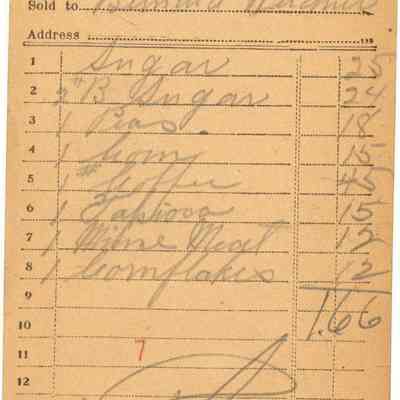 Sold to
Address
1 Sugar 25
2 2# B Sugar 24
3 1 Peas. 18
4 1 Corn 15
5 1# Coffee 45
6 1 Tapioca 15
7 1 Mince Meat 12
8 1 Cornflakes 12
9
10 1.66
11 7
12